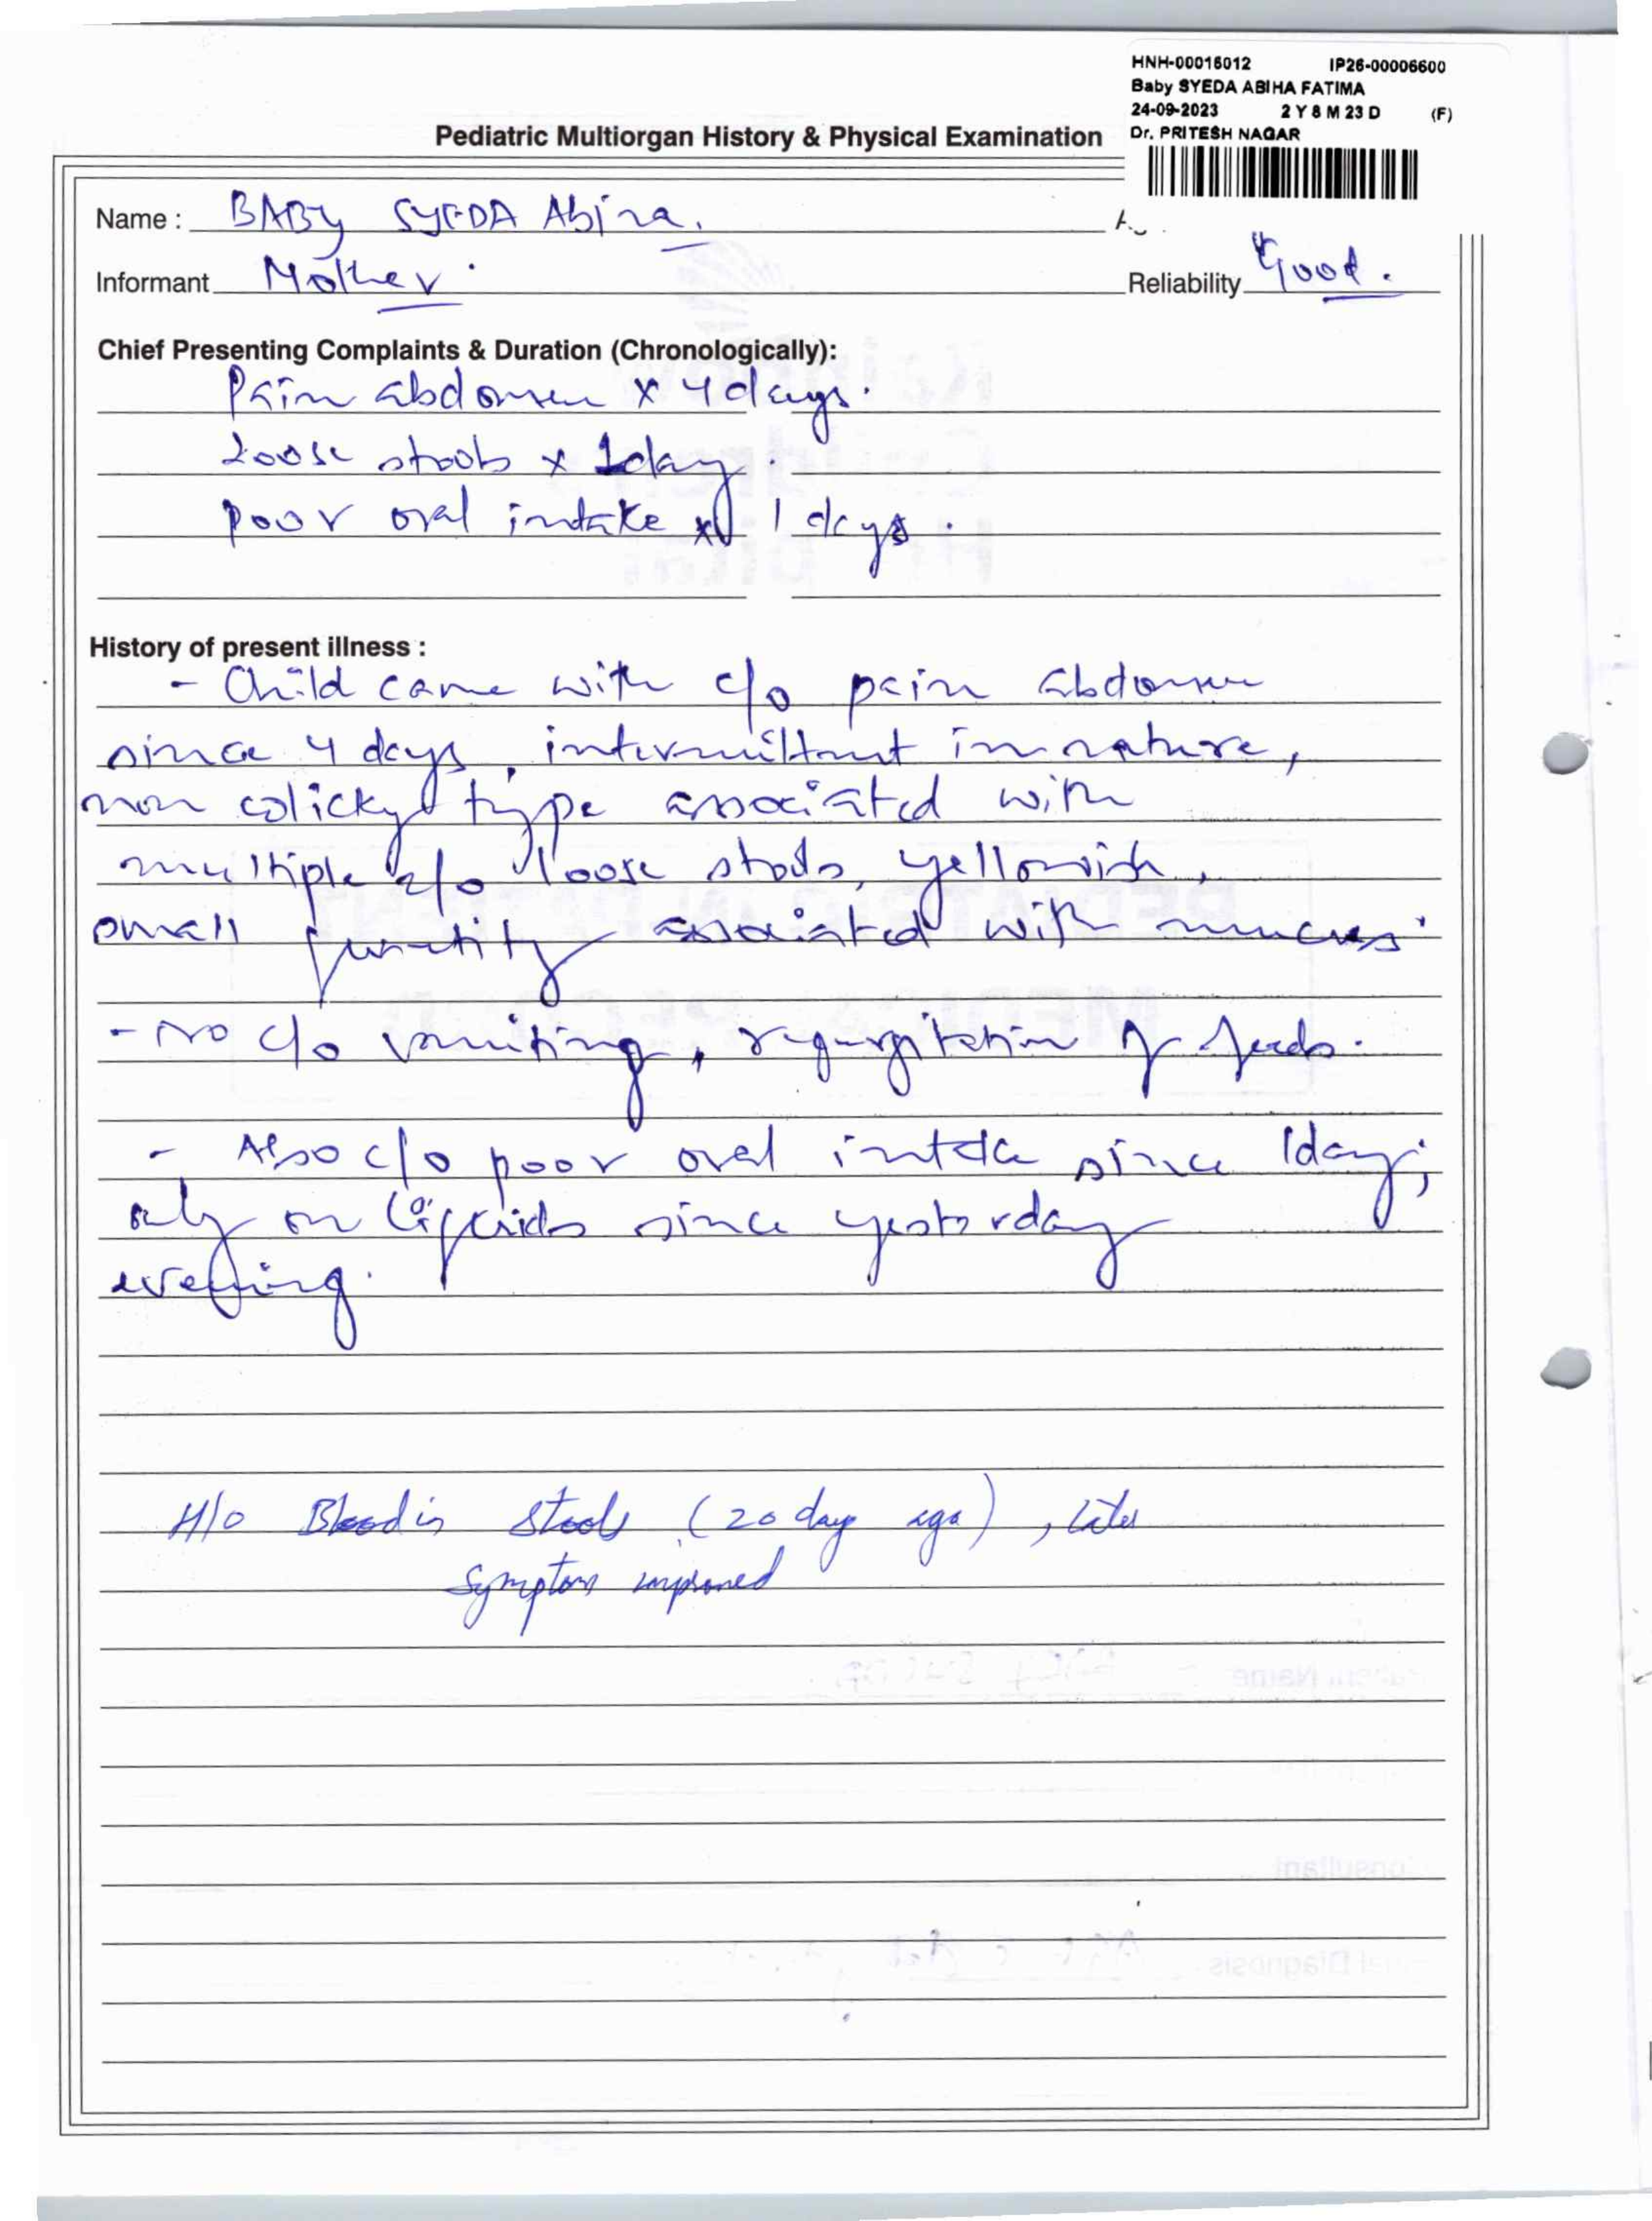 HNH-00016012 IP26-00006600
Baby SYEDA ABIHA FATIMA
24-09-2023 2 Y 8 M 23 D (F)
Dr. PRITESH NAGAR
Pediatric Multiorgan History & Physical Examination
Name : BABY SYEDA Abiha.
Informant Mother. Reliability Good.
Chief Presenting Complaints & Duration (Chronologically):
Pain abdomen x 4 days.
Loose stools x 1 day.
poor oral intake x 1 days.
History of present illness :
- Child came with c/o pain abdomen
since 4 days, intermittent in nature,
non colicky type associated with
multiple e/o loose stools, yellowish,
small quantity associated with mucus.
- No c/o vomiting, regurgitation of feeds.
- Also c/o poor oral intake since 1day,
only on liquids since yesterday
evening.
H/o Blood in stools (20 day ago), later
symptoms improved